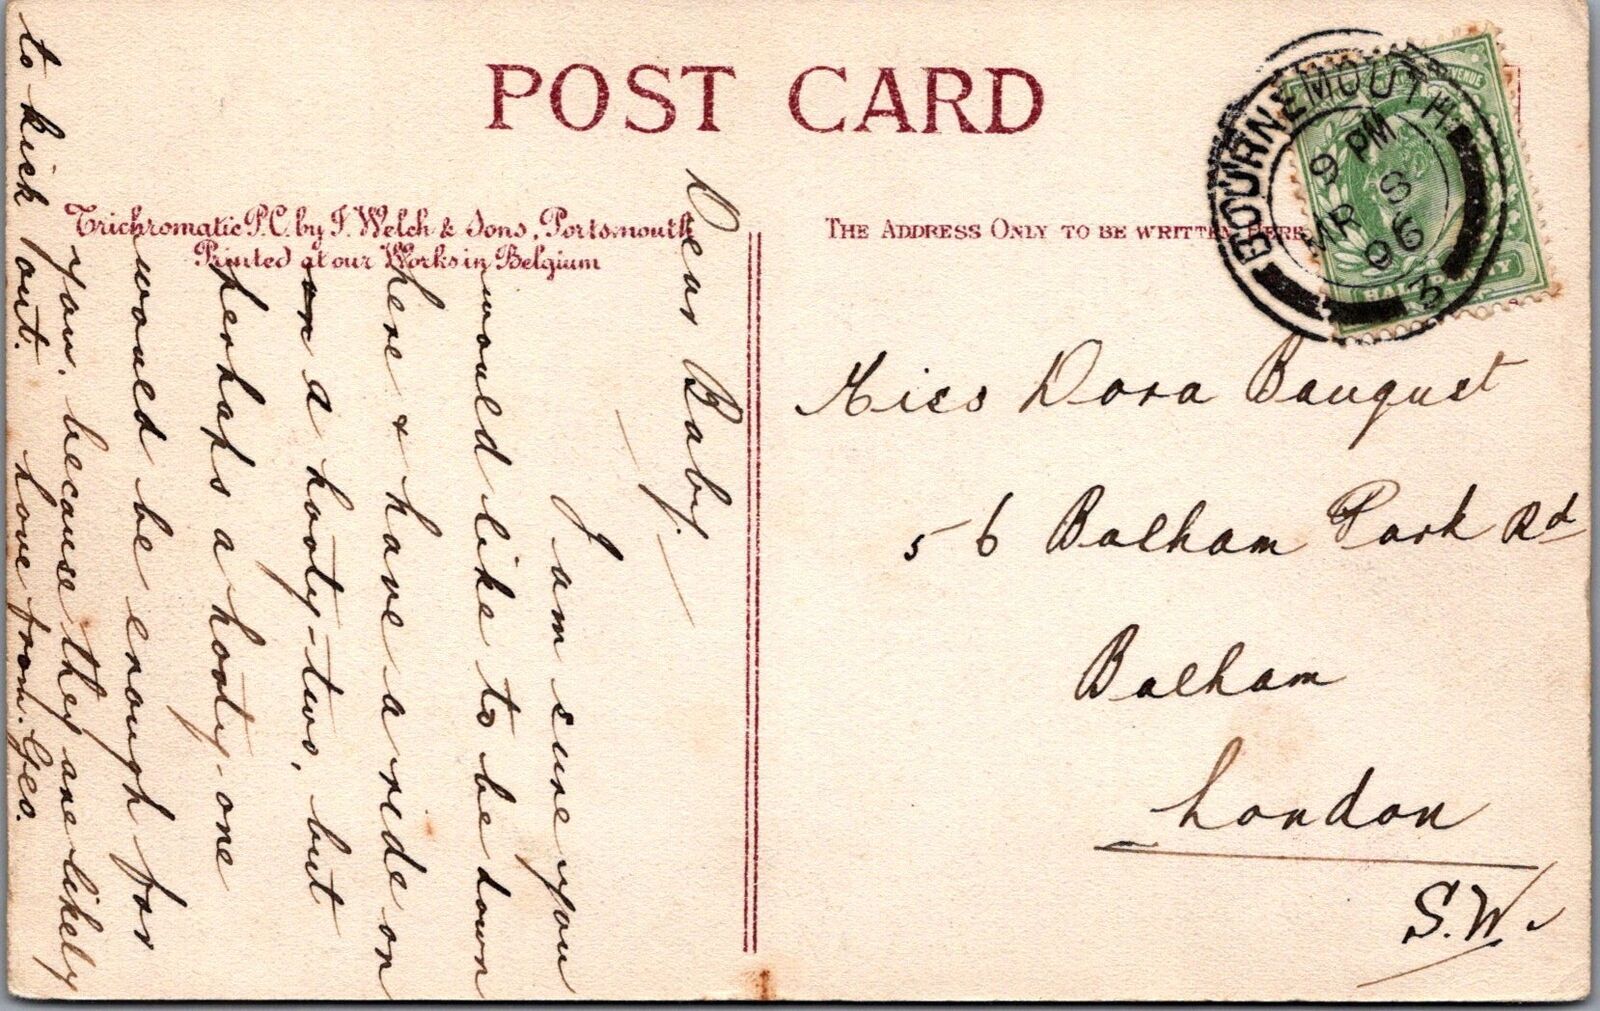 POST CARD
Trichromatic P.C. by J. Welch & Sons, Portsmouth
Printed at our Works in Belgium
THE ADDRESS ONLY TO BE WRITTEN HERE
BOURNEMOUTH
9 PM
MR 8
06
3
HALFPENNY
Dear Baby.
I am sure you
would like to be down
here & have a ride on
on a hooty-two, but
perhaps a hooty-one
would be enough for
you. because they are likely
to kick out. Love from. Geo.
Miss Dora Baugust
56 Balham Park Rd
Balham
London
S.W.